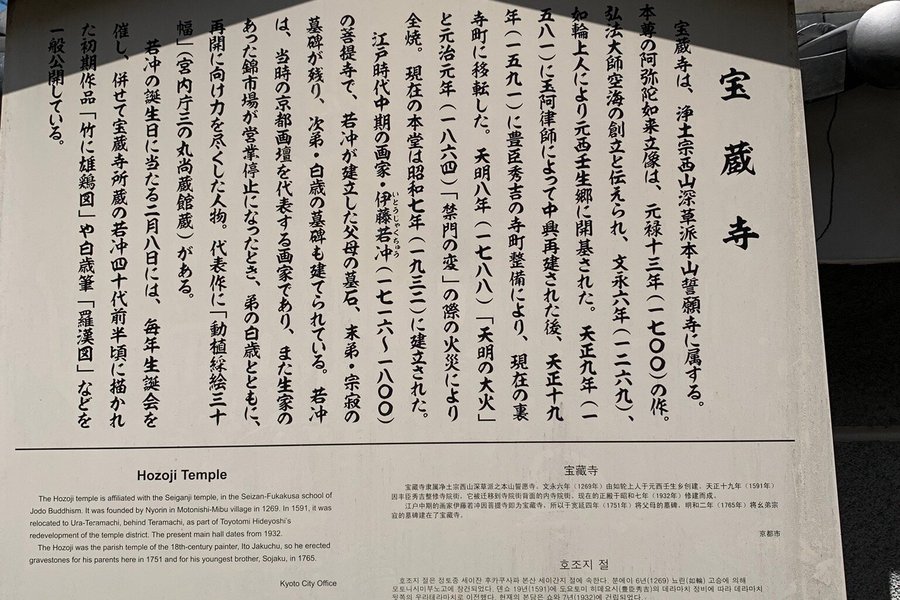 宝蔵寺
宝蔵寺は、浄土宗西山深草派本山誓願寺に属する。
本尊の阿弥陀如来立像は、元禄十三年（一七〇〇）の作。
弘法大師空海の創立と伝えられ、文永六年（一二六九）、
如輪上人により元西壬生郷に開基された。天正九年（一
五八一）に玉阿律師によって中興再建された後、天正十九
年（一五九一）に豊臣秀吉の寺町整備により、現在の裏
寺町に移転した。天明八年（一七八八）「天明の大火」
と元治元年（一八六四）「禁門の変」の際の火災により
全焼。現在の本堂は昭和七年（一九三二）に建立された。
江戸時代中期の画家・伊藤若冲（一七一六～一八〇〇）
いとうじゃくちゅう
の菩提寺で、若冲が建立した父母の墓石、末弟・宗寂の
墓碑が残り、次弟・白歳の墓碑も建てられている。若冲
は、当時の京都画壇を代表する画家であり、また生家の
あった錦市場が営業停止になったとき、弟の白歳とともに、
再開に向け力を尽くした人物。代表作に「動植綵絵三十
幅」（宮内庁三の丸尚蔵館蔵）がある。
若冲の誕生日に当たる二月八日には、毎年生誕会を
催し、併せて宝蔵寺所蔵の若冲四十代前半頃に描かれ
た初期作品「竹に雄鶏図」や白歳筆「羅漢図」などを
一般公開している。
Hozoji Temple
The Hozoji temple is affiliated with the Seiganji temple, in the Seizan-Fukakusa school of
Jodo Buddhism. It was founded by Nyorin in Motonishi-Mibu village in 1269. In 1591, it was
relocated to Ura-Teramachi, behind Teramachi, as part of Toyotomi Hideyoshi's
redevelopment of the temple district. The present main hall dates from 1932.
The Hozoji was the parish temple of the 18th-century painter, Ito Jakuchu, so he erected
gravestones for his parents here in 1751 and for his youngest brother, Sojaku, in 1765.
Kyoto City Office
宝藏寺
宝藏寺隶属净土宗西山深草派之本山誓愿寺。文永六年（1269年）由如轮上人于元西壬生乡创建。天正十九年（1591年）
因丰臣秀吉整修寺院街，它被迁移到寺院街背面的内寺院街。现在的正殿于昭和七年（1932年）修建而成。
江户中期的画家伊藤若冲因菩提寺即为宝藏寺，所以于宽延四年（1751年）将父母的墓碑、明和二年（1765年）将幺弟宗
寂的墓碑建在了宝藏寺。
京都市
호조지 절
호조지 절은 정토종 세이잔 후카쿠사파 본산 세이간지 절에 속한다. 분메이 6년(1269) 뇨린(如輪) 고승에 의해
모토니시미부노고에 창건되었다. 덴쇼 19년(1591)에 도요토미 히데요시(豊臣秀吉)의 데라마치 정비에 따라 데라마치
뒷쪽의 우라테라마치로 이전했다. 현재의 본당은 쇼와 7년(1932)에 건립되었다.